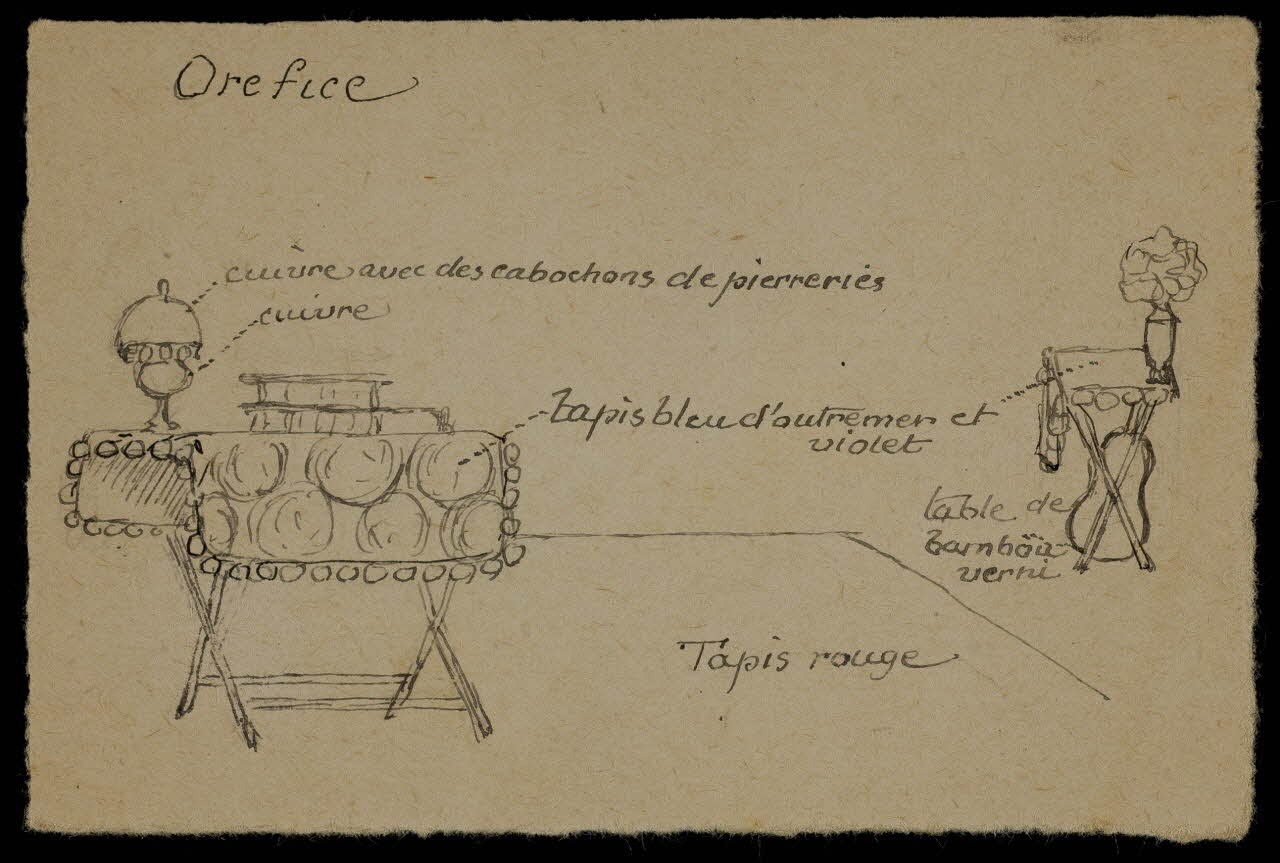 Orefice
cuivre avec des cabochons de pierreries
cuivre
tapis bleu d'outremer et
violet
table de
bamboü
verni
Tapis rouge